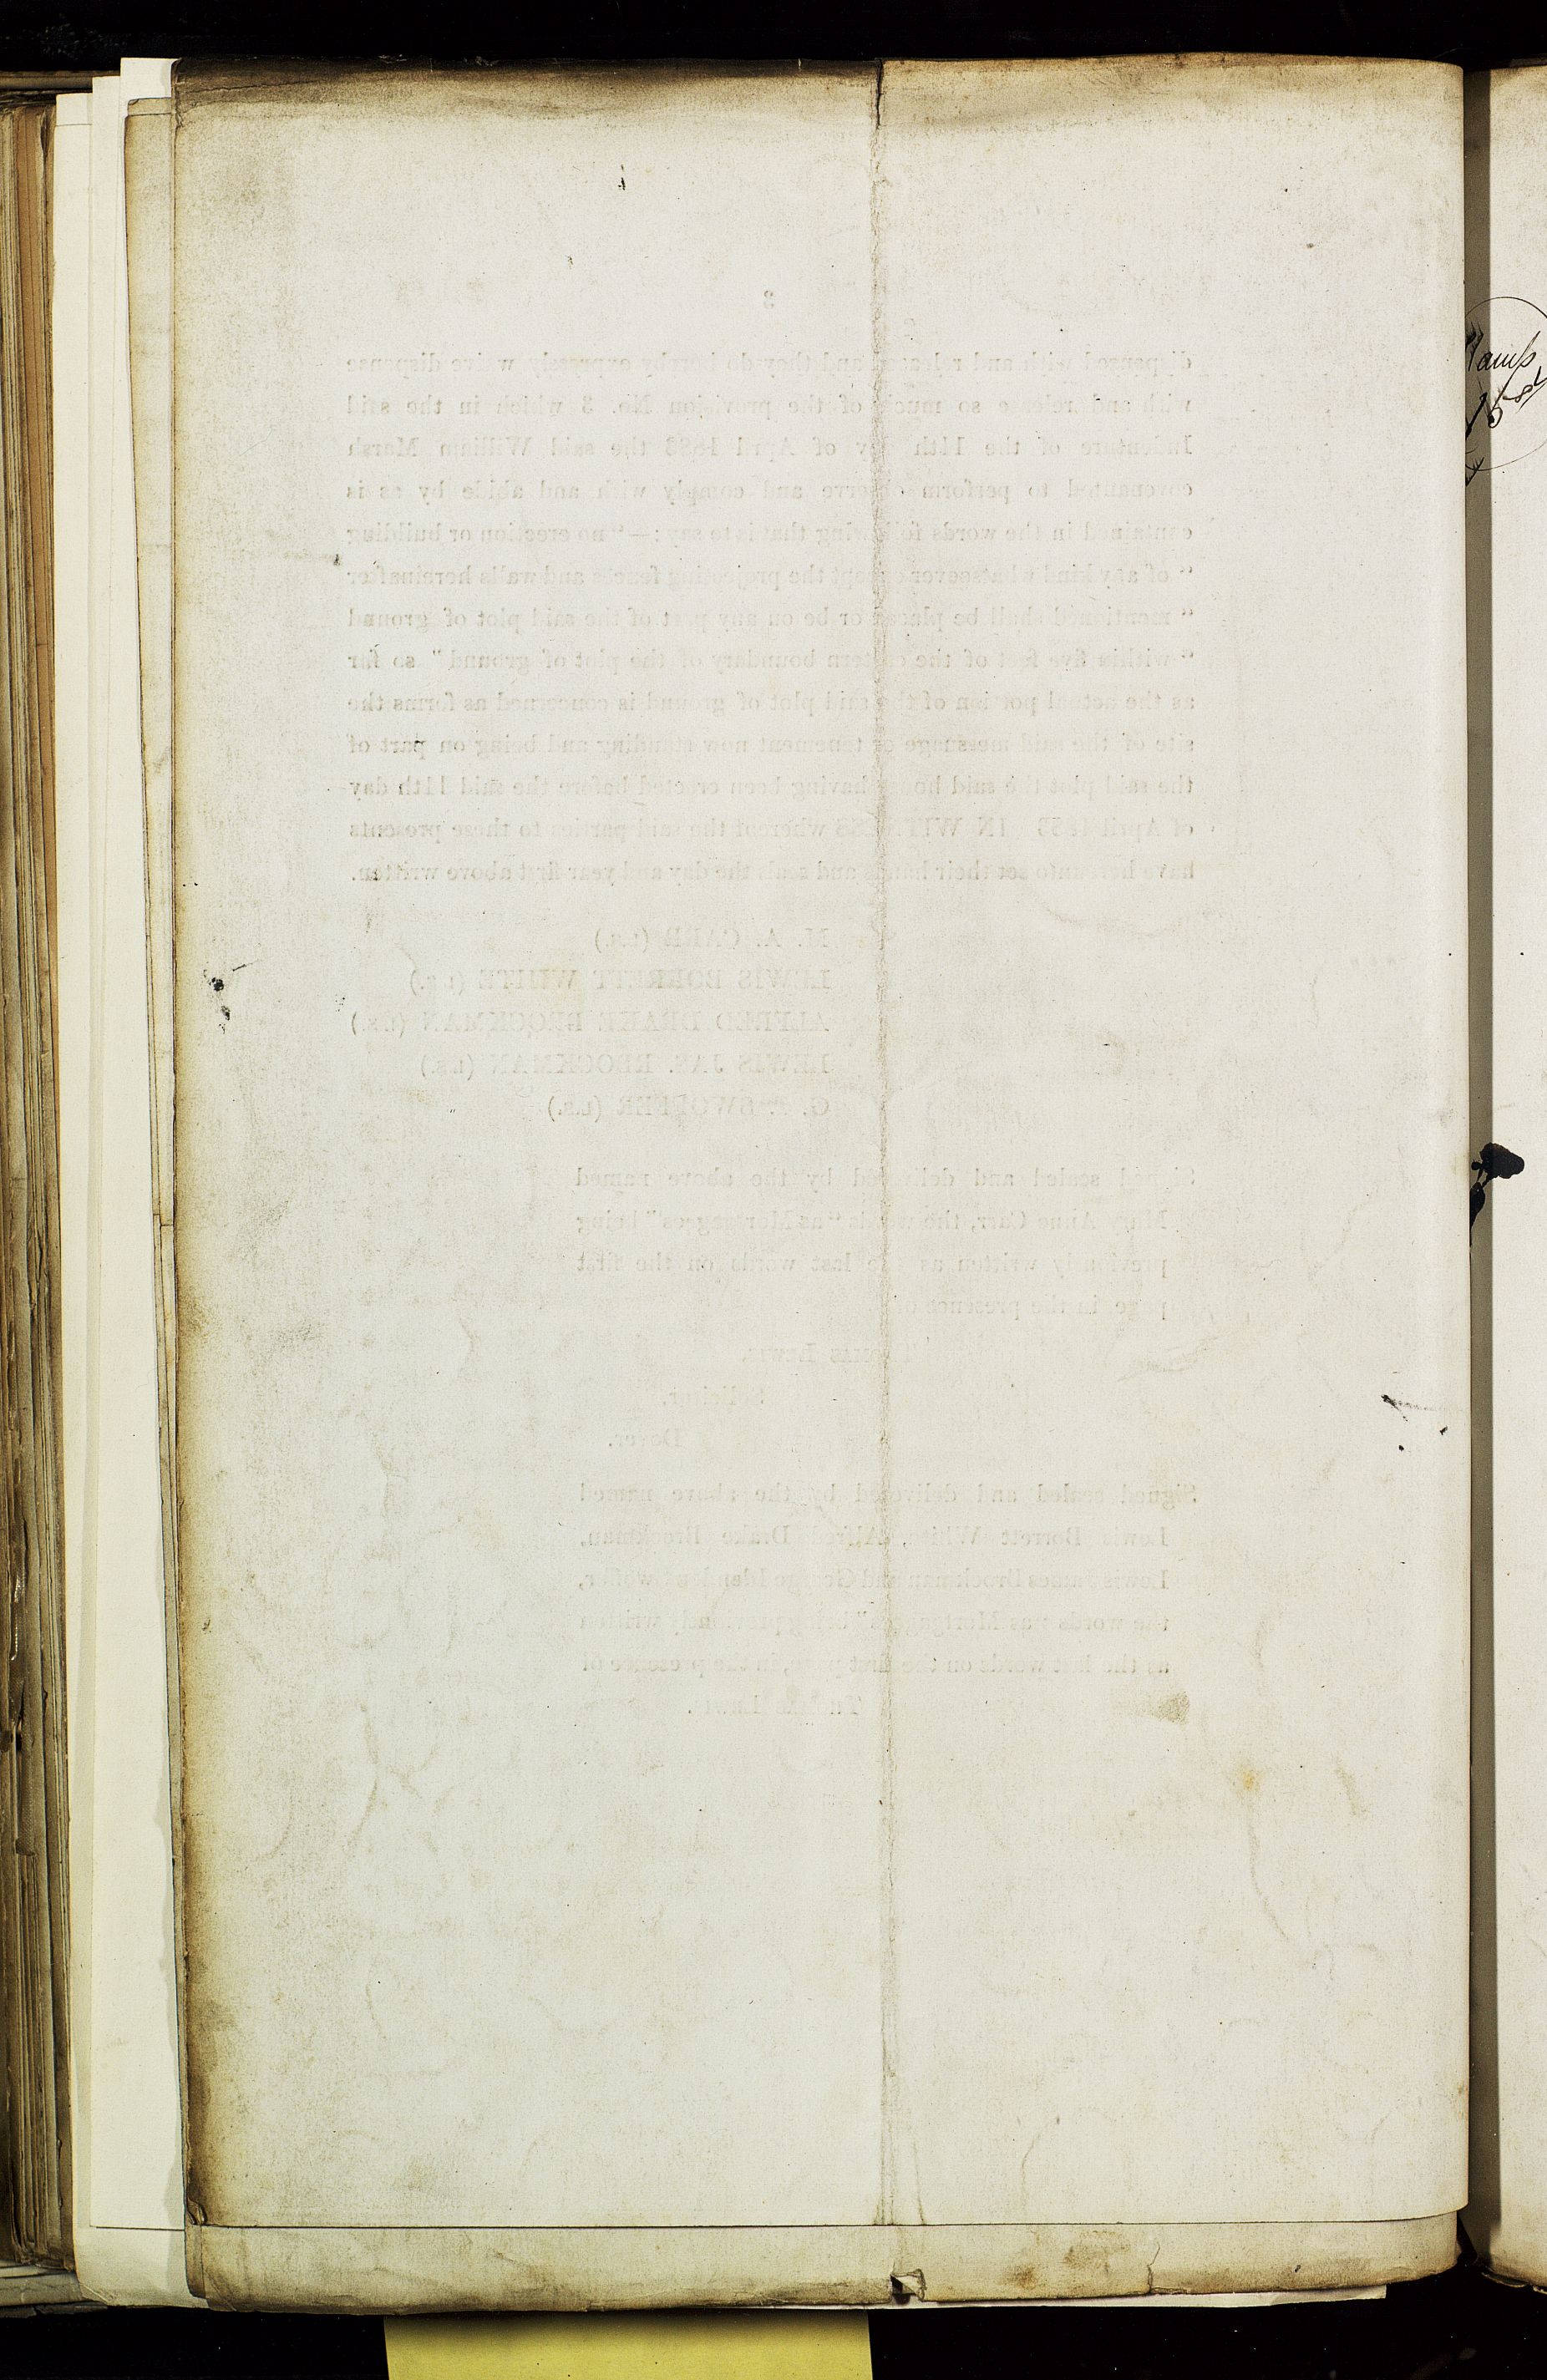 3
dispensed with and released and they do hereby expressly waive dispense
with and release so much of the provision No. 3 which in the said
Indenture of the 11th day of April 1883 the said William Marsh
covenanted to perform observe and comply with and abide by as is
contained in the words following that is to say :—"no erection or building
"of any kind whatsoever except the projecting and walls hereinafter
"mentioned shall be placed or be on any part of the said plot of ground
"within five feet of the eastern boundary of the plot of ground" so far
as the actual portion of the said plot of ground is concerned as forms the
site of the said messuage or tenement now standing and being on part of
the said plot the said house having been erected before the said 11th day
of April IN WITNESS whereof the said parties to these presents
have hereunto set their hands and seals the day and year first above written.
M. A. CARR (L.S.)
LEWIS BORRETT WHITE (L.S.)
ALFRED DRAKE BROCKMAN (L.S.)
LEWIS JAS. BROCKMAN (L.S.)
SWOFFER (L.S.)
Signed sealed and delivered by the above named
Mary Anne Carr, the words "as Mortgagees" being
previously written as the last words on the first
page, in the presence of
THOMAS LEWIS.
Solicitor,
Dover.
Signed sealed and delivered by the above named
Lewis Borrett White, Alfred Drake Brockman,
Lewis James Brockman and George Swoffer,
the words "as Mortgagees" being previously written
as the last words on the first page, in the presence of
THOMAS LEWIS.